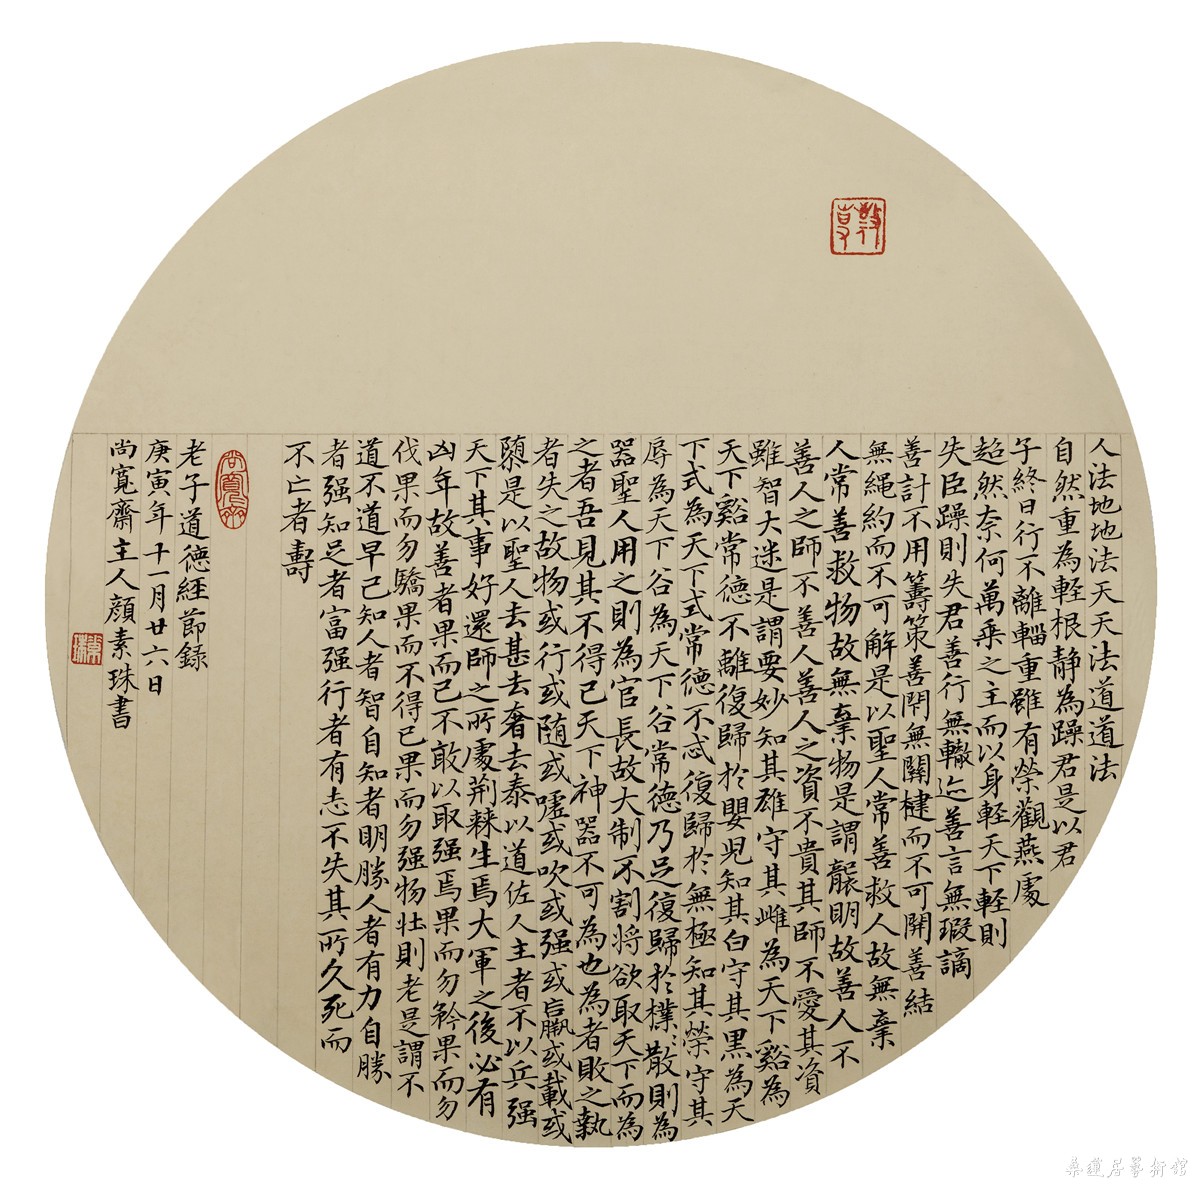 人法地地法天天法道道法
自然重為輊根静為躁君是以君
子終日行不離輜重雖有榮觀燕處
超然奈何萬乘之主而以身輊天下輊則
失臣躁則失君善行無轍迹善言無瑕謫
善計不用籌策善閇無關楗而不可開善結
無繩約而不可解是以聖人常善救人故無棄
人常善救物故無棄物是謂襲明故善人不
善人之師不善人善人之資不貴其師不愛其資
雖智大迷是謂要妙知其雄守其雌為天下谿為
天下谿常德不離復歸於嬰兒知其白守其黑為天
下式為天下式常德不忒復歸於無極知其榮守其
辱為天下谷為天下谷常德乃足復歸於樸〻散則為
器聖人用之則為官長故大制不割將欲取天下而為
之者吾見其不得已天下神器不可為也為者敗之執
者失之故物或行或随或噓或吹或强或羸或載或
隳是以聖人去甚去奢去泰以道佐人主者不以兵强
天下其事好還師之所處荆棘生焉大軍之後必有
凶年故善者果而已不敢以取强焉果而勿矜果而勿
伐果而勿驕果而不得已果而勿强物壮則老是謂不
道不道早已知人者智自知者明勝人者有力自勝
者强知足者富强行者有志不失其所久死而
不亡者壽
尚寬齋
老子道德經節録
庚寅年十一月廿六日
尚寬齋主人顔素珠書
素珠
桑蓮居藝術馆